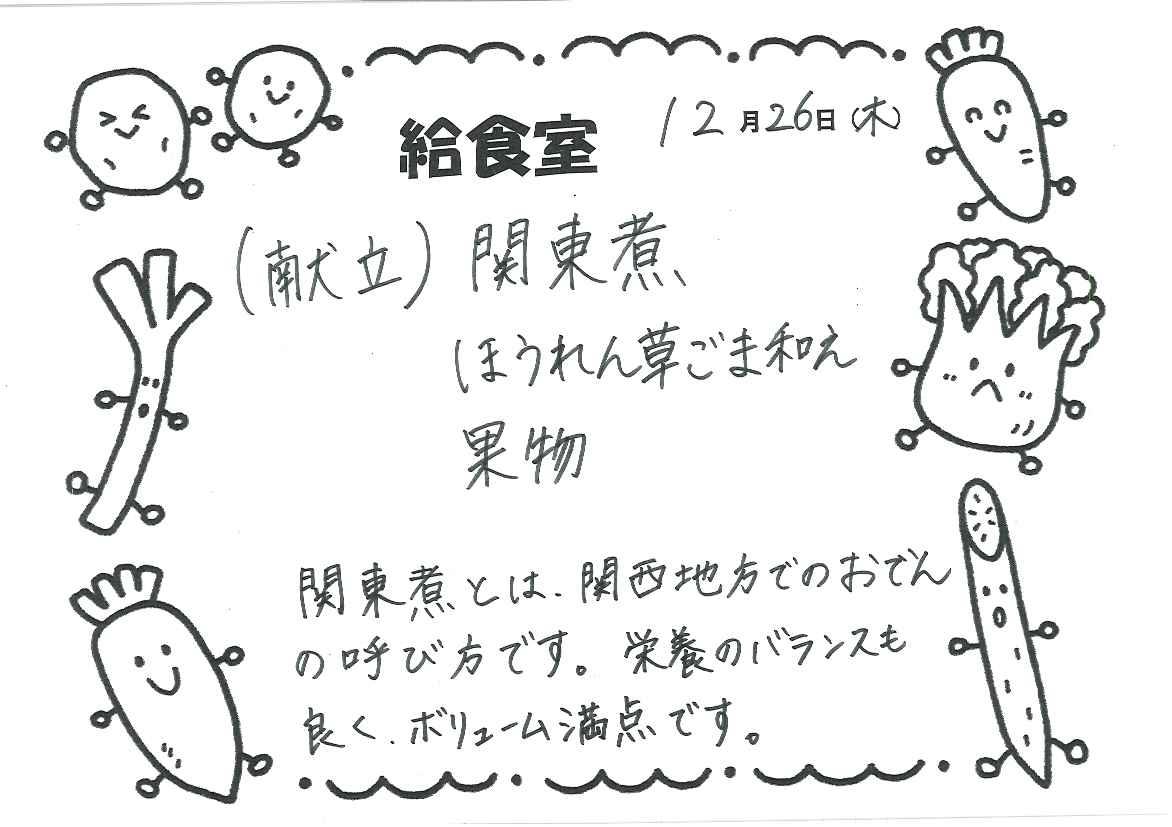 給食室 12月26日(木)
(献立) 関東煮
ほうれん草ごま和え
果物
関東煮とは、関西地方でのおでん
の呼び方です。栄養のバランスも
良く、ボリューム満点です。